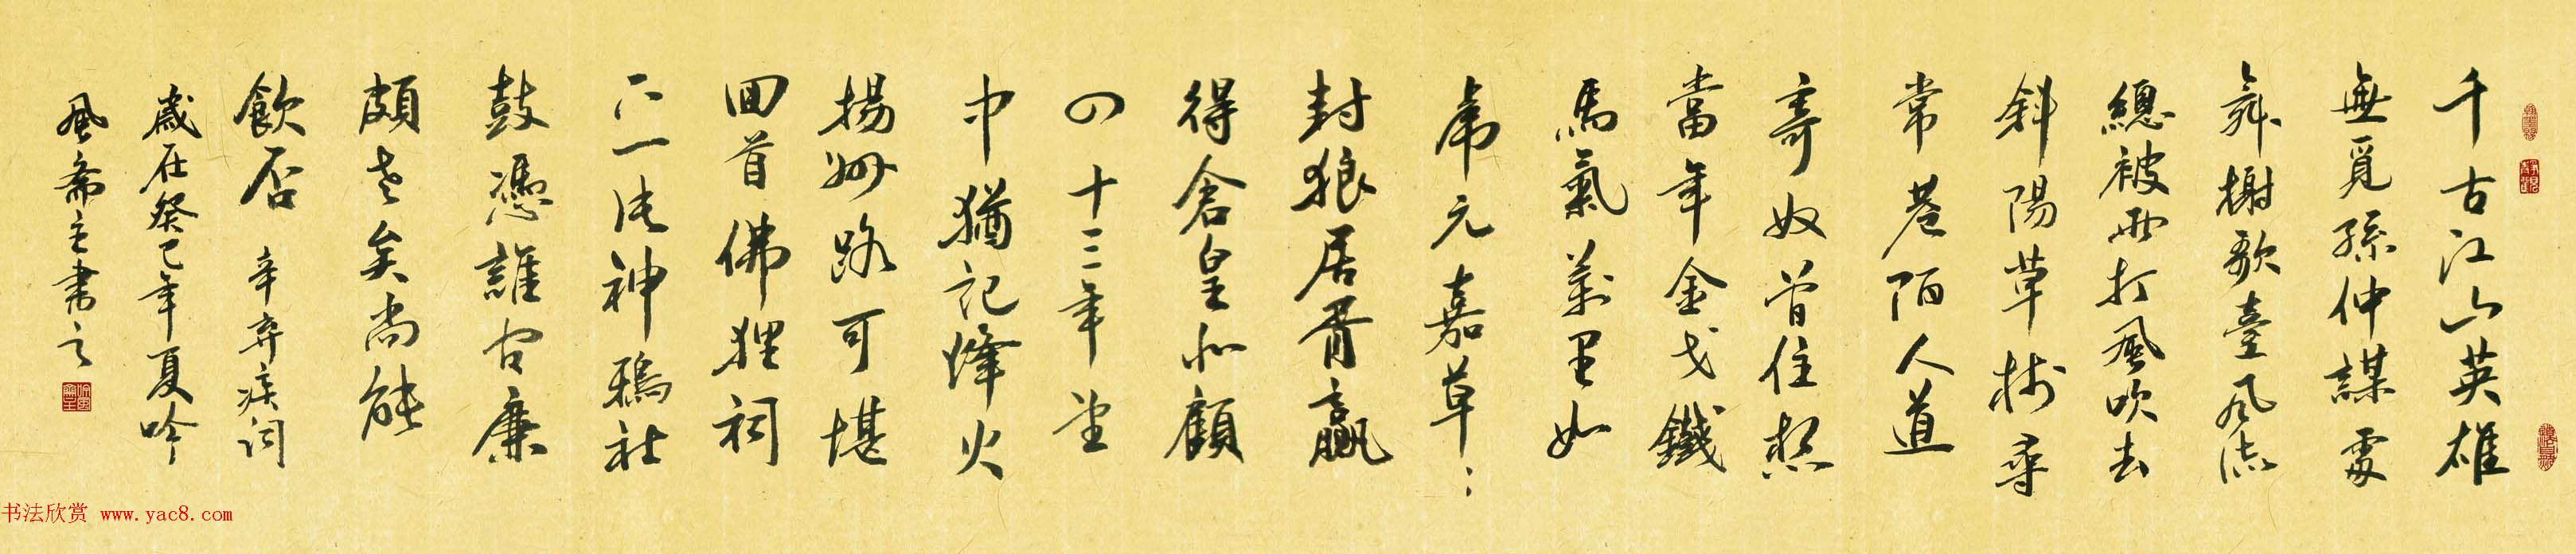 千古江山英雄
無覓孫仲謀處
舞榭歌臺風流
總被雨打風吹去
斜陽草樹尋
常巷陌人道
寄奴曾住想
當年金戈鐵
馬氣萬里如
虎元嘉草：
封狼居胥贏
得倉皇北顧
四十三年望
中猶記烽火
揚州路可堪
回首佛狸祠
下一片神鴉社
鼓憑誰問廉
頗老矣尚能
飯否 辛弃疾詞
歲在癸巳年夏吟
風齋主書之
书法欣赏 www.yac8.com